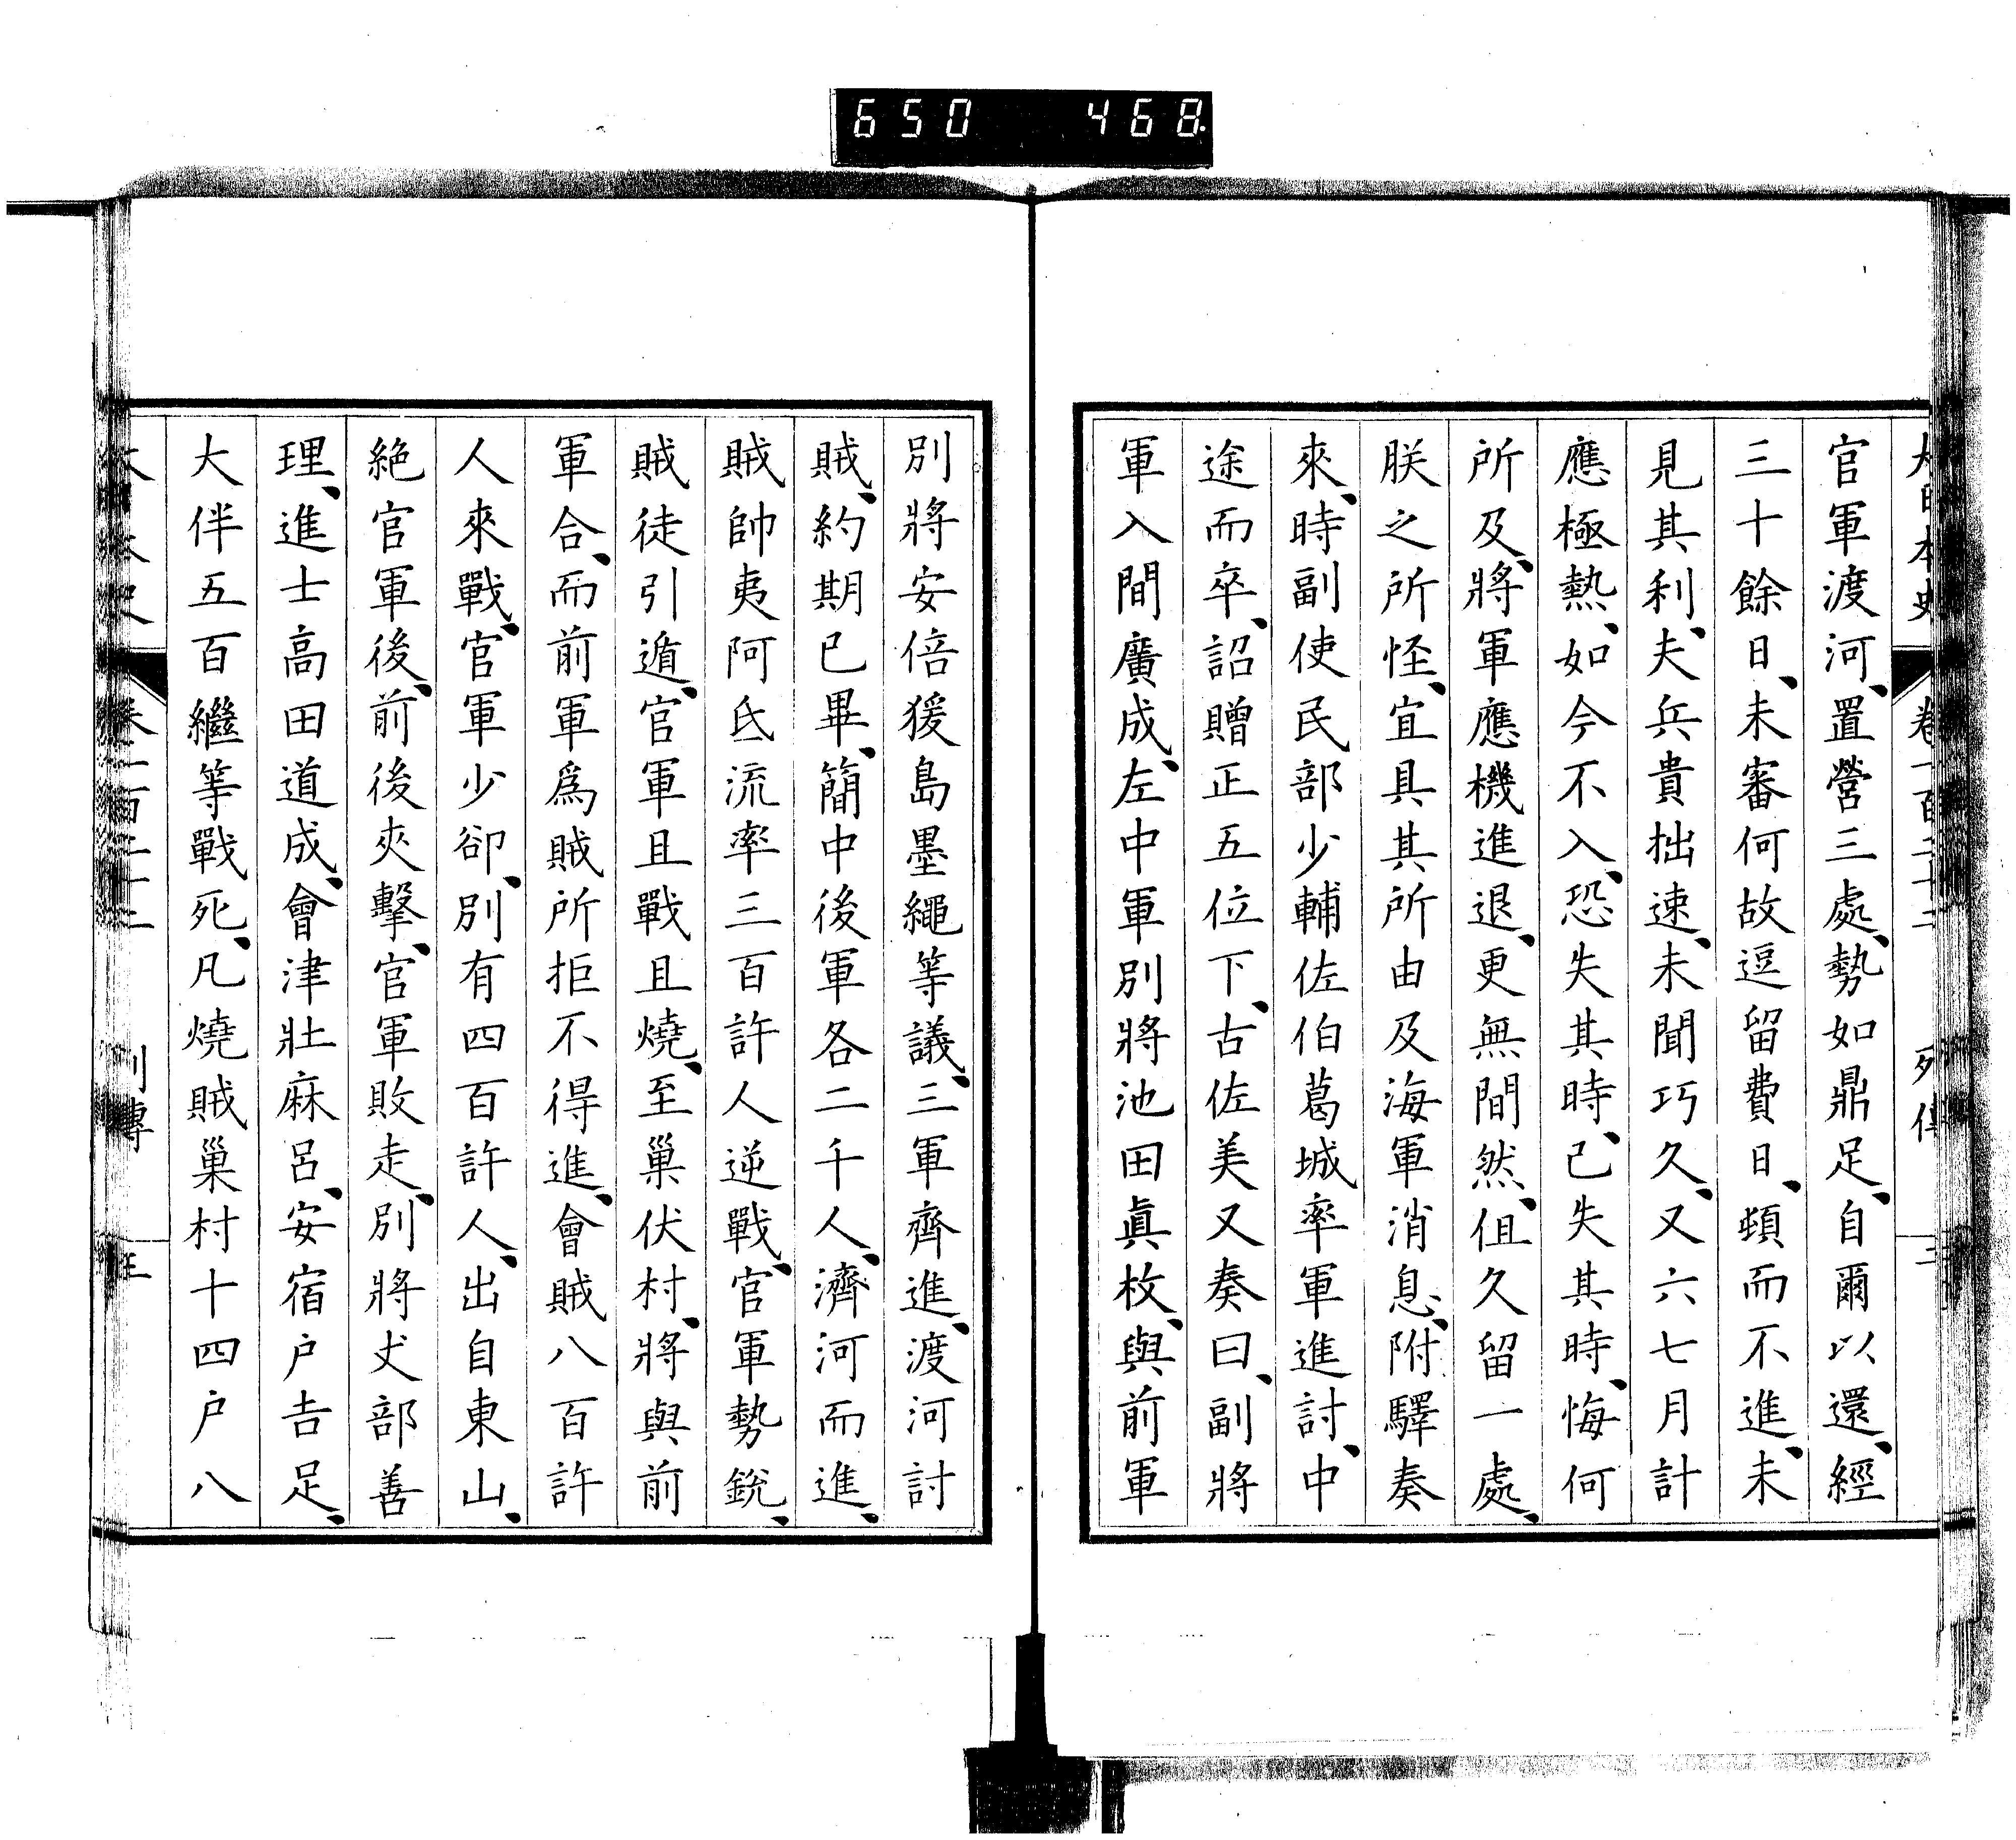 650 468
大日本史 卷一百二十二 列傳 三
官軍渡河、置營三處、勢如鼎足、自爾以還、經
三十餘日、未審何故逗留費日、頓而不進、未
見其利、夫兵貴拙速、未聞巧久、又六七月計
應極熱、如今不入、恐失其時、已失其時、悔何
所及、將軍應機進退、更無間然、但久留一處、
朕之所怪、宜具其所由及海軍消息、附驛奏
來、時副使民部少輔佐伯葛城率軍進討、中
途而卒、詔贈正五位下、古佐美又奏曰、副將
軍入間廣成、左中軍別將池田眞枚、與前軍
別將安倍猨島墨繩等議、三軍齊進、渡河討
賊、約期已畢、簡中後軍各二千人、濟河而進、
賊帥夷阿氐流率三百許人逆戰、官軍勢銳、
賊徒引遁、官軍且戰且燒、至巢伏村、將與前
軍合、而前軍爲賊所拒不得進、會賊八百許
人來戰、官軍少卻、別有四百許人、出自東山、
絶官軍後、前後夾擊、官軍敗走、別將丈部善
理、進士高田道成、會津壯麻呂、安宿戶吉足、
大伴五百繼等戰死、凡燒賊巢村十四戶八